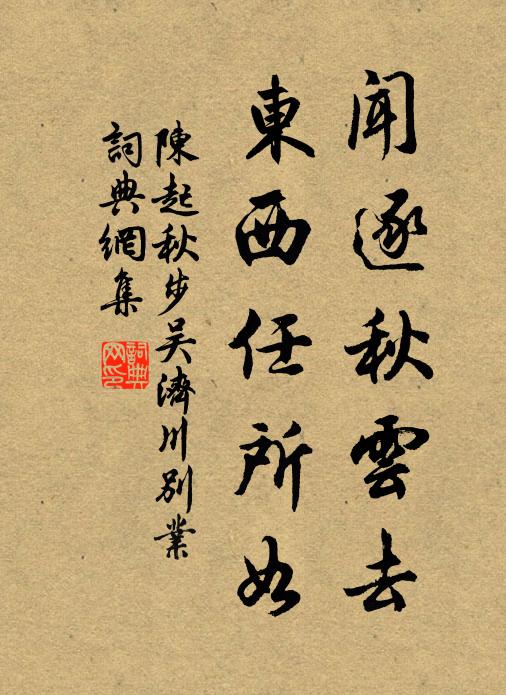 聞逐秋雲去
東西任所如
陳起秋步吴濟川別業
詞典網集
詞典
网印